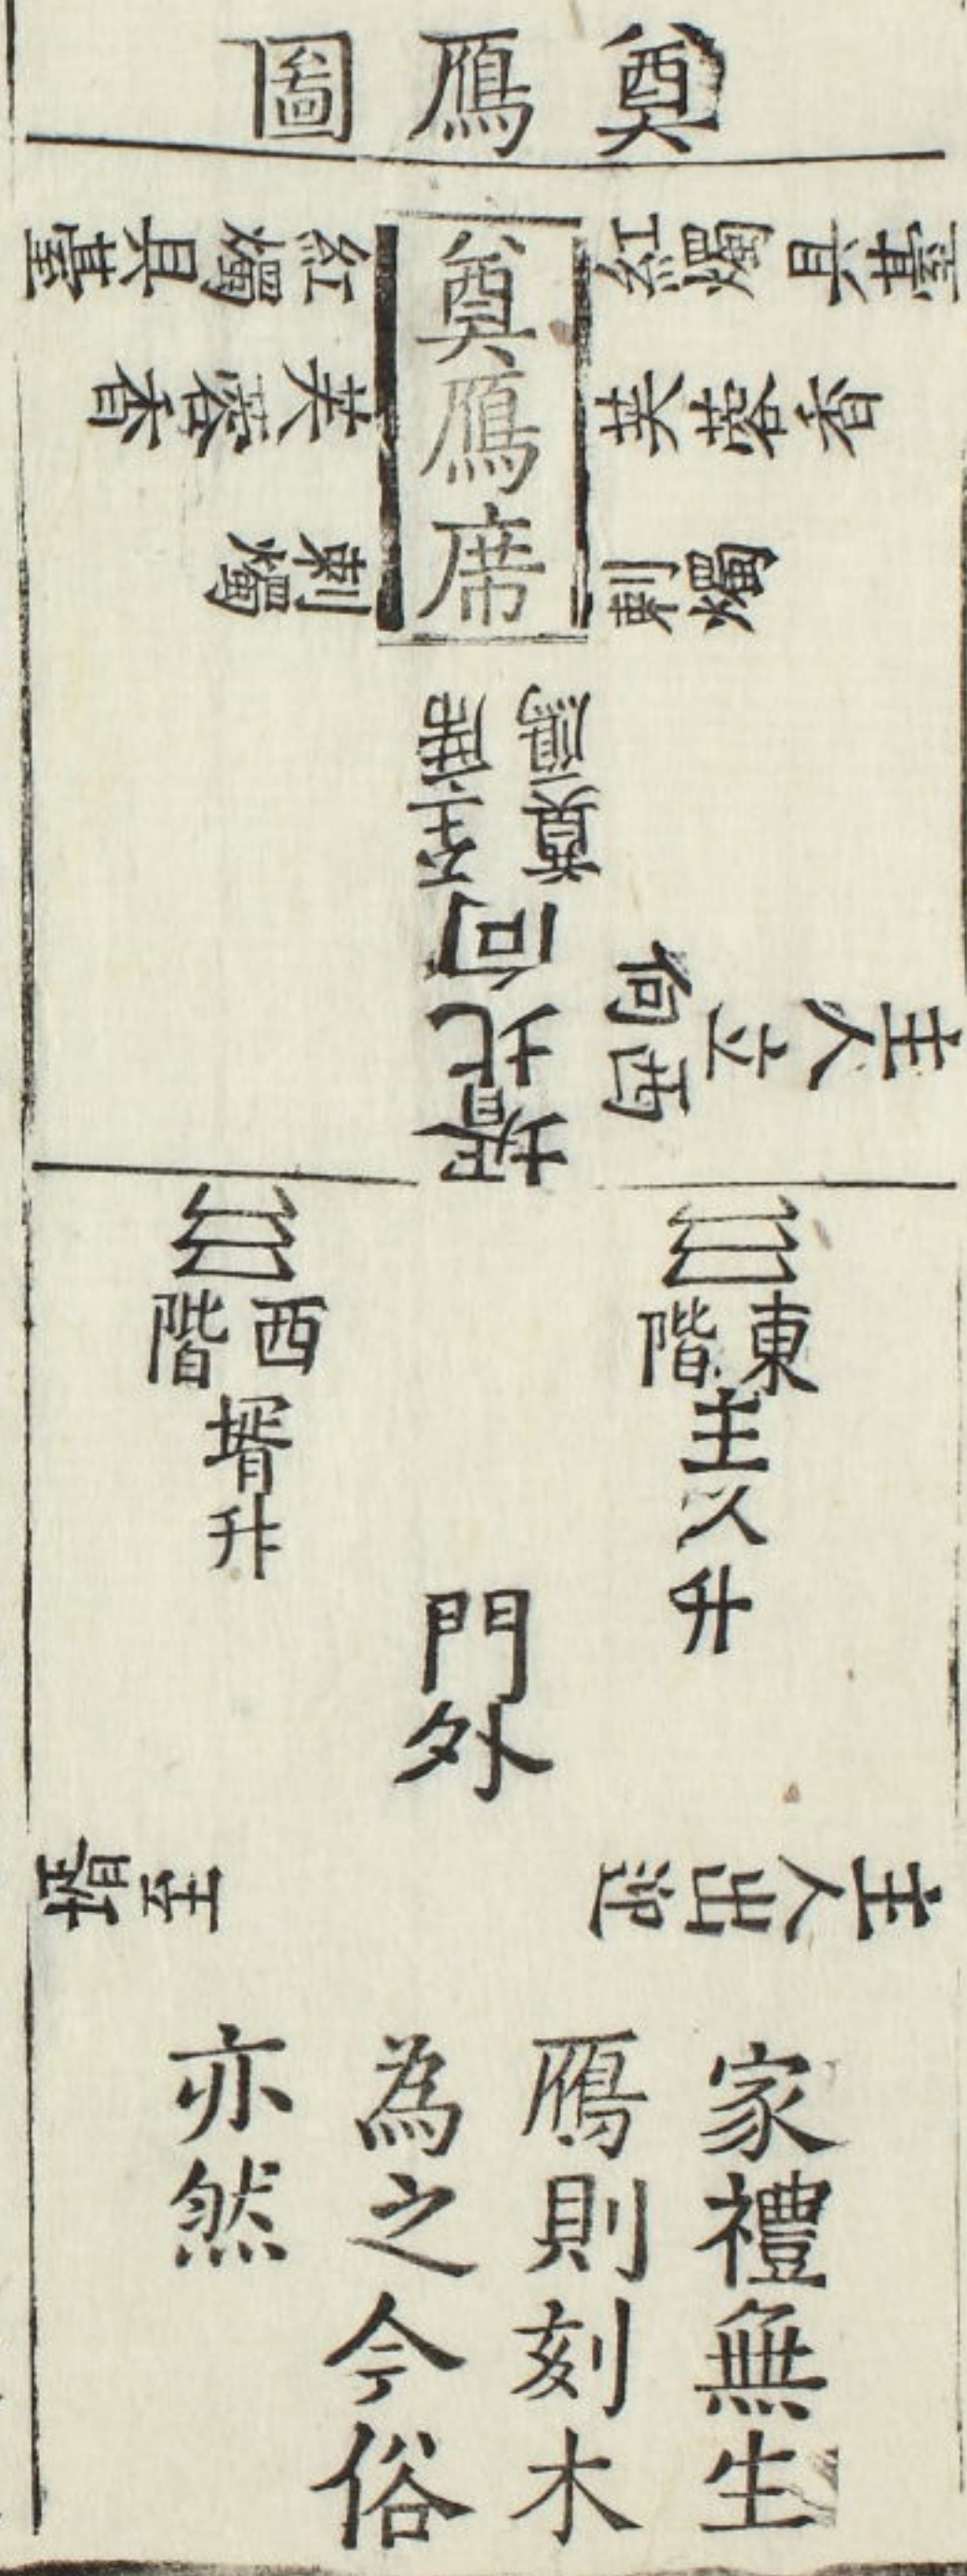 奠鴈圖
奠鴈席
紅燭具臺
芙蓉香
刺燭
紅燭具臺
芙蓉香
刺燭
壻北向
至席
奠鴈
主人立西向
東階
主人升
西階
壻升
門外
主人出迎
壻至
家禮無生
鴈則刻木
為之今俗
亦然